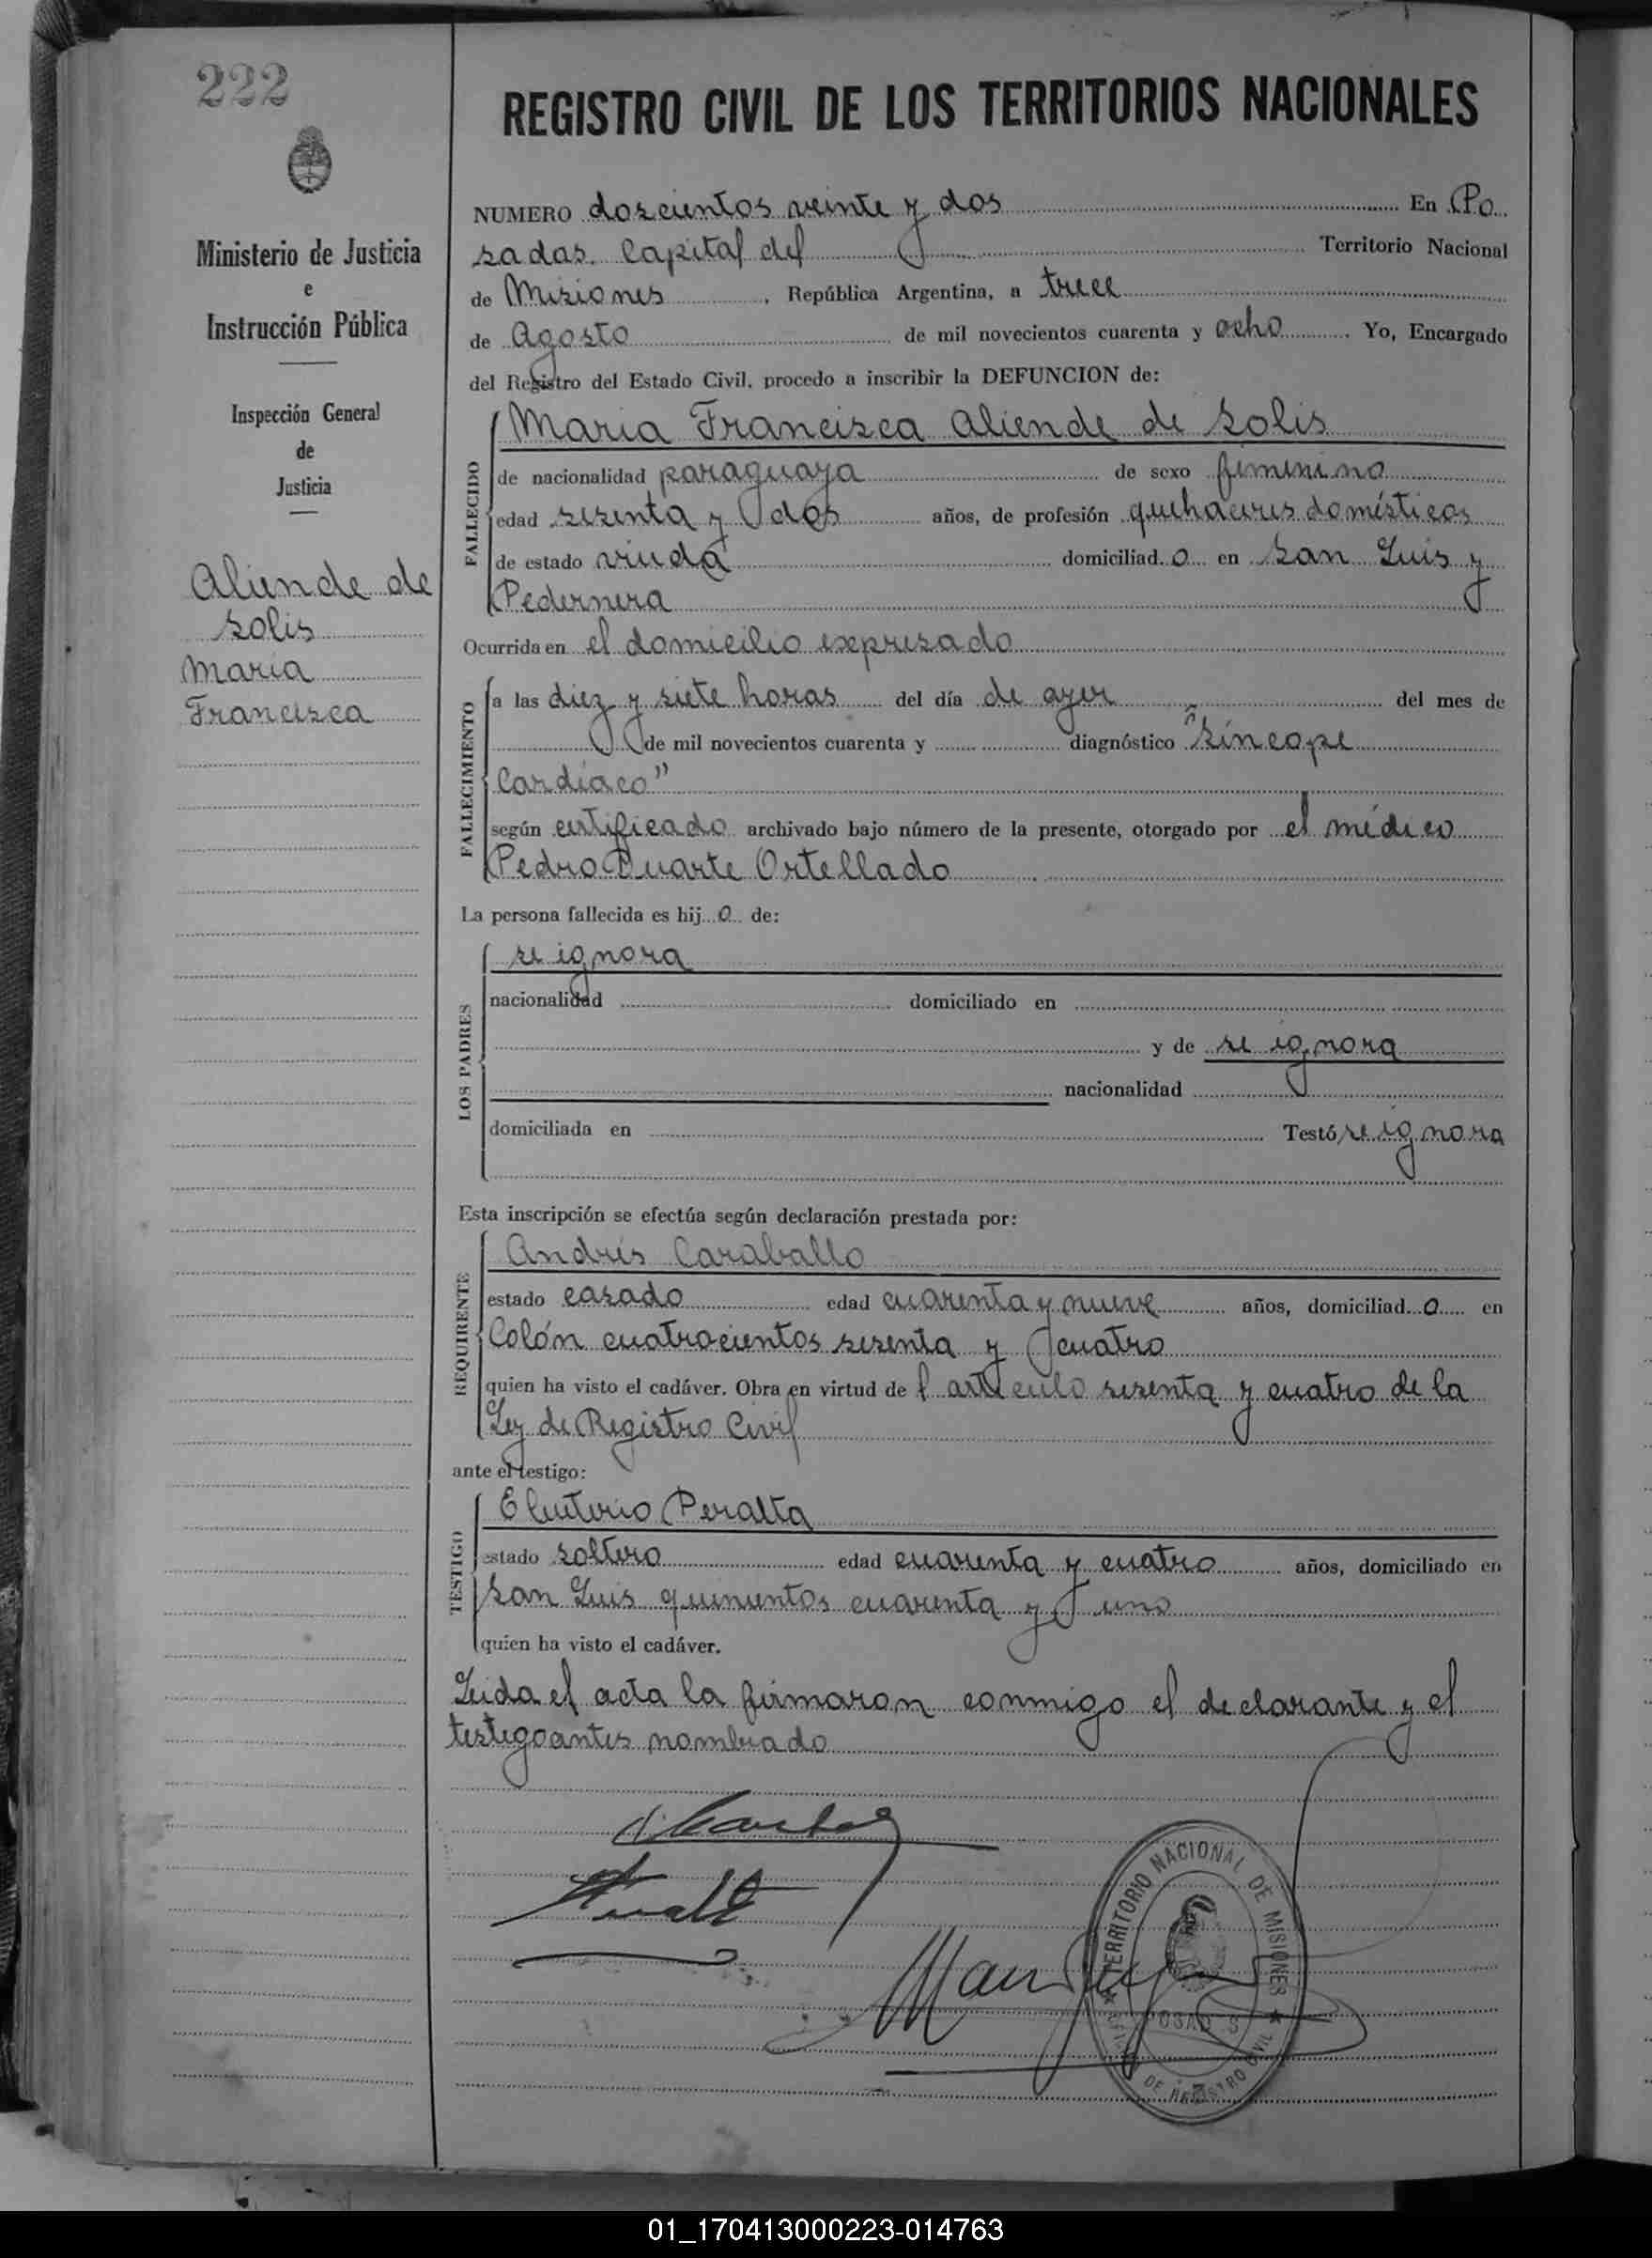 222
REGISTRO CIVIL DE LOS TERRITORIOS NACIONALES
Ministerio de Justicia
e
Instrucción Pública
Inspección General
de
Justicia
Aliende de
Solis
Maria
Francisca
NUMERO doscientos veinte y dos En Po
sadas. Capital del Territorio Nacional
de Misiones, República Argentina, a trece
de Agosto de mil novecientos cuarenta y ocho. Yo, Encargado
del Registro del Estado Civil, procedo a inscribir la DEFUNCION de:
FALLECIDO
Maria Francisca Aliende de Solis
de nacionalidad paraguaya de sexo femenino
edad sesenta y dos años, de profesión quehaceres domésticos
de estado viuda domiciliad o en San Luis y
Pedernera
Ocurrida en el domicilio expresado
FALLECIMIENTO
a las diez y siete horas del día de ayer del mes de
de mil novecientos cuarenta y diagnóstico "Síncope
Cardíaco"
según certificado archivado bajo número de la presente, otorgado por el médico
Pedro Duarte Ortellado
La persona fallecida es hij o de:
LOS PADRES
se ignora
nacionalidad domiciliado en
y de se ignora
nacionalidad
domiciliada en Testó se ignora
Esta inscripción se efectúa según declaración prestada por:
REQUIRENTE
Andrés Caraballo
estado casado edad cuarenta y nueve años, domiciliad o en
Colón cuatrocientos sesenta y cuatro
quien ha visto el cadáver. Obra en virtud de l artículo sesenta y cuatro de la
Ley de Registro Civil
ante el testigo:
TESTIGO
Eleuterio Peralta
estado soltero edad cuarenta y cuatro años, domiciliado en
San Luis quinientos cuarenta y uno
quien ha visto el cadáver.
Leida el acta la firmaron conmigo el declarante y el
testigo antes nombrado
TERRITORIO NACIONAL DE MISIONES
POSADAS
DE REGISTRO CIVIL
01_170413000223-014763